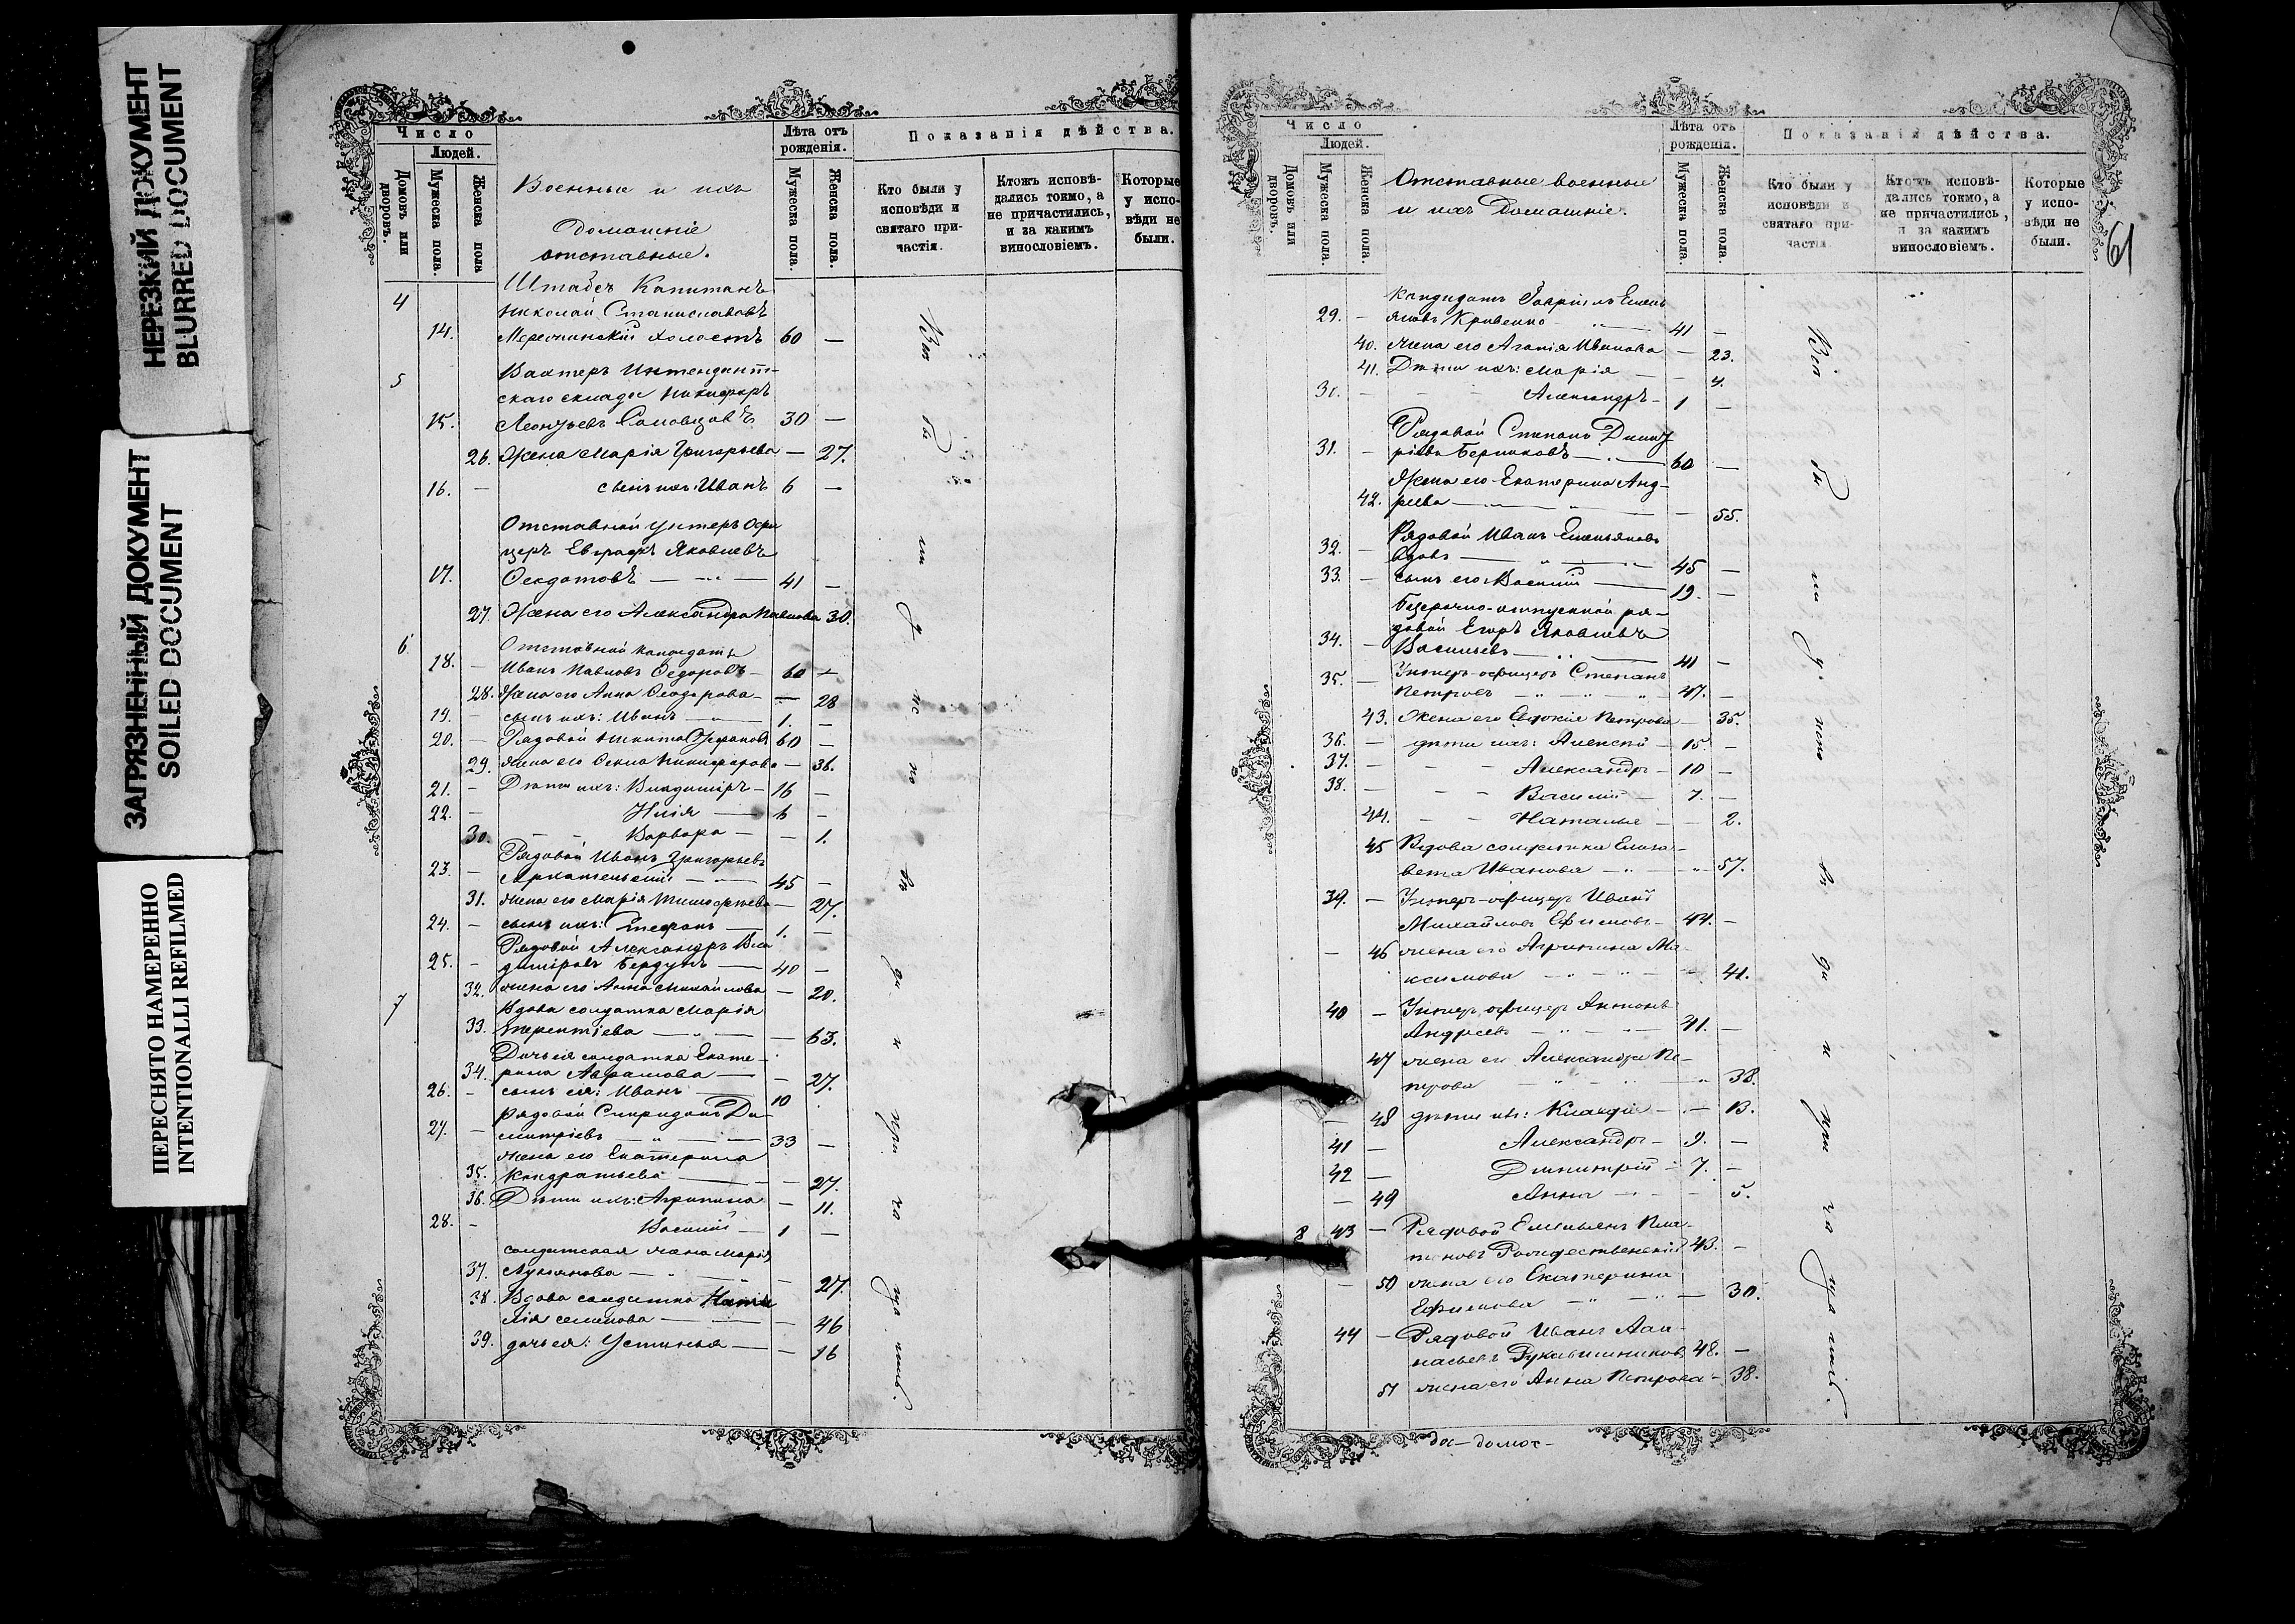 НЕРЕЗКИЙ ДОКУМЕНТ
BLURRED DOCUMENT
ЗАГРЯЗНЕННЫЙ ДОКУМЕНТ
SOILED DOCUMENT
ПЕРЕСНЯТО НАМЕРЕННО
INTENTIONALLI REFILMED
Число
Людей.
Домовъ или дворовъ.
Мужеска пола.
Женска пола
Военные и ихъ
Домашніе
отставные.
Лѣта отъ рожденія.
Мужеска пола.
Женска пола.
Показанія дѣйства.
Кто были у исповѣди и святаго причастія.
Ктожъ исповѣдались токмо, а не причастились, и за какимъ винословіемъ.
Которые у исповѣди не были.
4 Штабсъ Капитанъ
Николай Станиславовъ
14. холостъ 60 —
5 Вахтеръ Интендант-
скаго склада Никифоръ
15. Леонтьевъ 30 —
26. Жена Марія Григорьева — 27.
16. — сынъ ихъ: Иванъ 6 —
Отставной унтеръ офи
церъ Евграфъ Яковлевъ
17. Федотовъ — 41 —
27. Жена его Александра Павлова 30.
6. Отставной кандатъ
18. — Иванъ Павловъ Федоровъ — 60 —
28. Жена его Анна Феодорова — — 28
19. — сынъ ихъ: Иванъ — 1. —
20. — Рядовой Никита 60 —
29. жена его Никифорова — 36.
21. — Дѣти ихъ: Владиміръ — 16 —
22. — Илія — 6 —
30. — — Варвара — — 1.
Рядовой Иванъ Григорьевъ
23. — 45 —
31. жена его Марія Тимофѣева — 27.
24. — сынъ ихъ: Стефанъ — 1. —
Рядовой Александръ Вла
25. — диміровъ Бердунъ — 40 —
32. жена его Анна Михайлова — 20.
7 Вдова солдатка Марія
33. Терентіева — — 63.
Дочь ея солдатка Екате-
34. рина Абрамова — — 27.
26. — сынъ ея: Иванъ — 10
Рядовой Спиридонъ Ди-
27. — митріевъ — 33 —
жена его Екатерина
35. Кондратьева — — 27.
36. Дѣти ихъ: Агрипина — 11.
28. — Василій — 1 —
солдатская жена Марія
37. Лукьянова — — 27.
38. Вдова солдатка Ната
лія Семенова — — 46
39. дочь ея: Устинья — — 16
Всѣ бы ли у ис по вѣ ди и при ча ща лись.
Число
Людей.
Домовъ или дворовъ.
Мужеска пола.
Женска пола.
Отставные военные
и ихъ Домашніе.
Лѣта отъ рожденія.
Мужеска пола.
Женска пола.
Показанія дѣйства.
Кто были у исповѣди и святаго причастія.
Ктожъ исповѣдались токмо, а не причастились, и за какимъ винословіемъ.
Которые у исповѣди не были.
61
Кандидатъ Гавріилъ Емель
29. — яновъ Кривенко — 41 —
40. жена его Агапія Иванова — 23.
41. Дѣти ихъ: Марія — — 4.
30. — — — Александръ — 1 —
Рядовой Степанъ Димит
31. — ріевъ — 60 —
Жена его Екатерина Анд-
42. реева — — 55.
Рядовой Иванъ Емельяновъ
32. — вдовъ — 45 —
33. — сынъ его: Василій — 19. —
Безсрочно-отпускной ря-
довой Егоръ Яковлевъ
34. — Васильевъ — 41 —
35. — Унтеръ-офицеръ Степанъ
Петровъ — 47. —
43. Жена его Евдокія Петрова — 35.
36. — дѣти ихъ: Алексѣй — 15. —
37. — — — Александръ — 10 —
38. — — — Василій — 7. —
44. — — Наталья — — 2.
45 Вдова солдатка Елиза-
вета Иванова — 57.
39. — Унтеръ-офицеръ Иванъ
Михайловъ Ефимовъ — 44. —
— 46 жена его Агрипина Ма-
ксимова — 41.
40 — Унтеръ офицеръ Антонъ
Андреевъ — 41. —
47 жена его Александра Пе-
трова — 38.
— 48 дѣти ихъ: Клавдія — — 13.
41 — Александръ — 9. —
42 — Димитрій — 7. —
— 49 Анна — — 5.
8 43 — Рядовой Емельянъ Пла-
тоновъ Рождественскій 43. —
— 50 жена его Екатерина
Ефимова — 30.
44 — Рядовой Иванъ Аѳа-
насьевъ Рукавишниковъ 48. —
51 жена его Анна Петрова — 38.
Всѣ бы ли у испо вѣ ди и при ча ща лись.